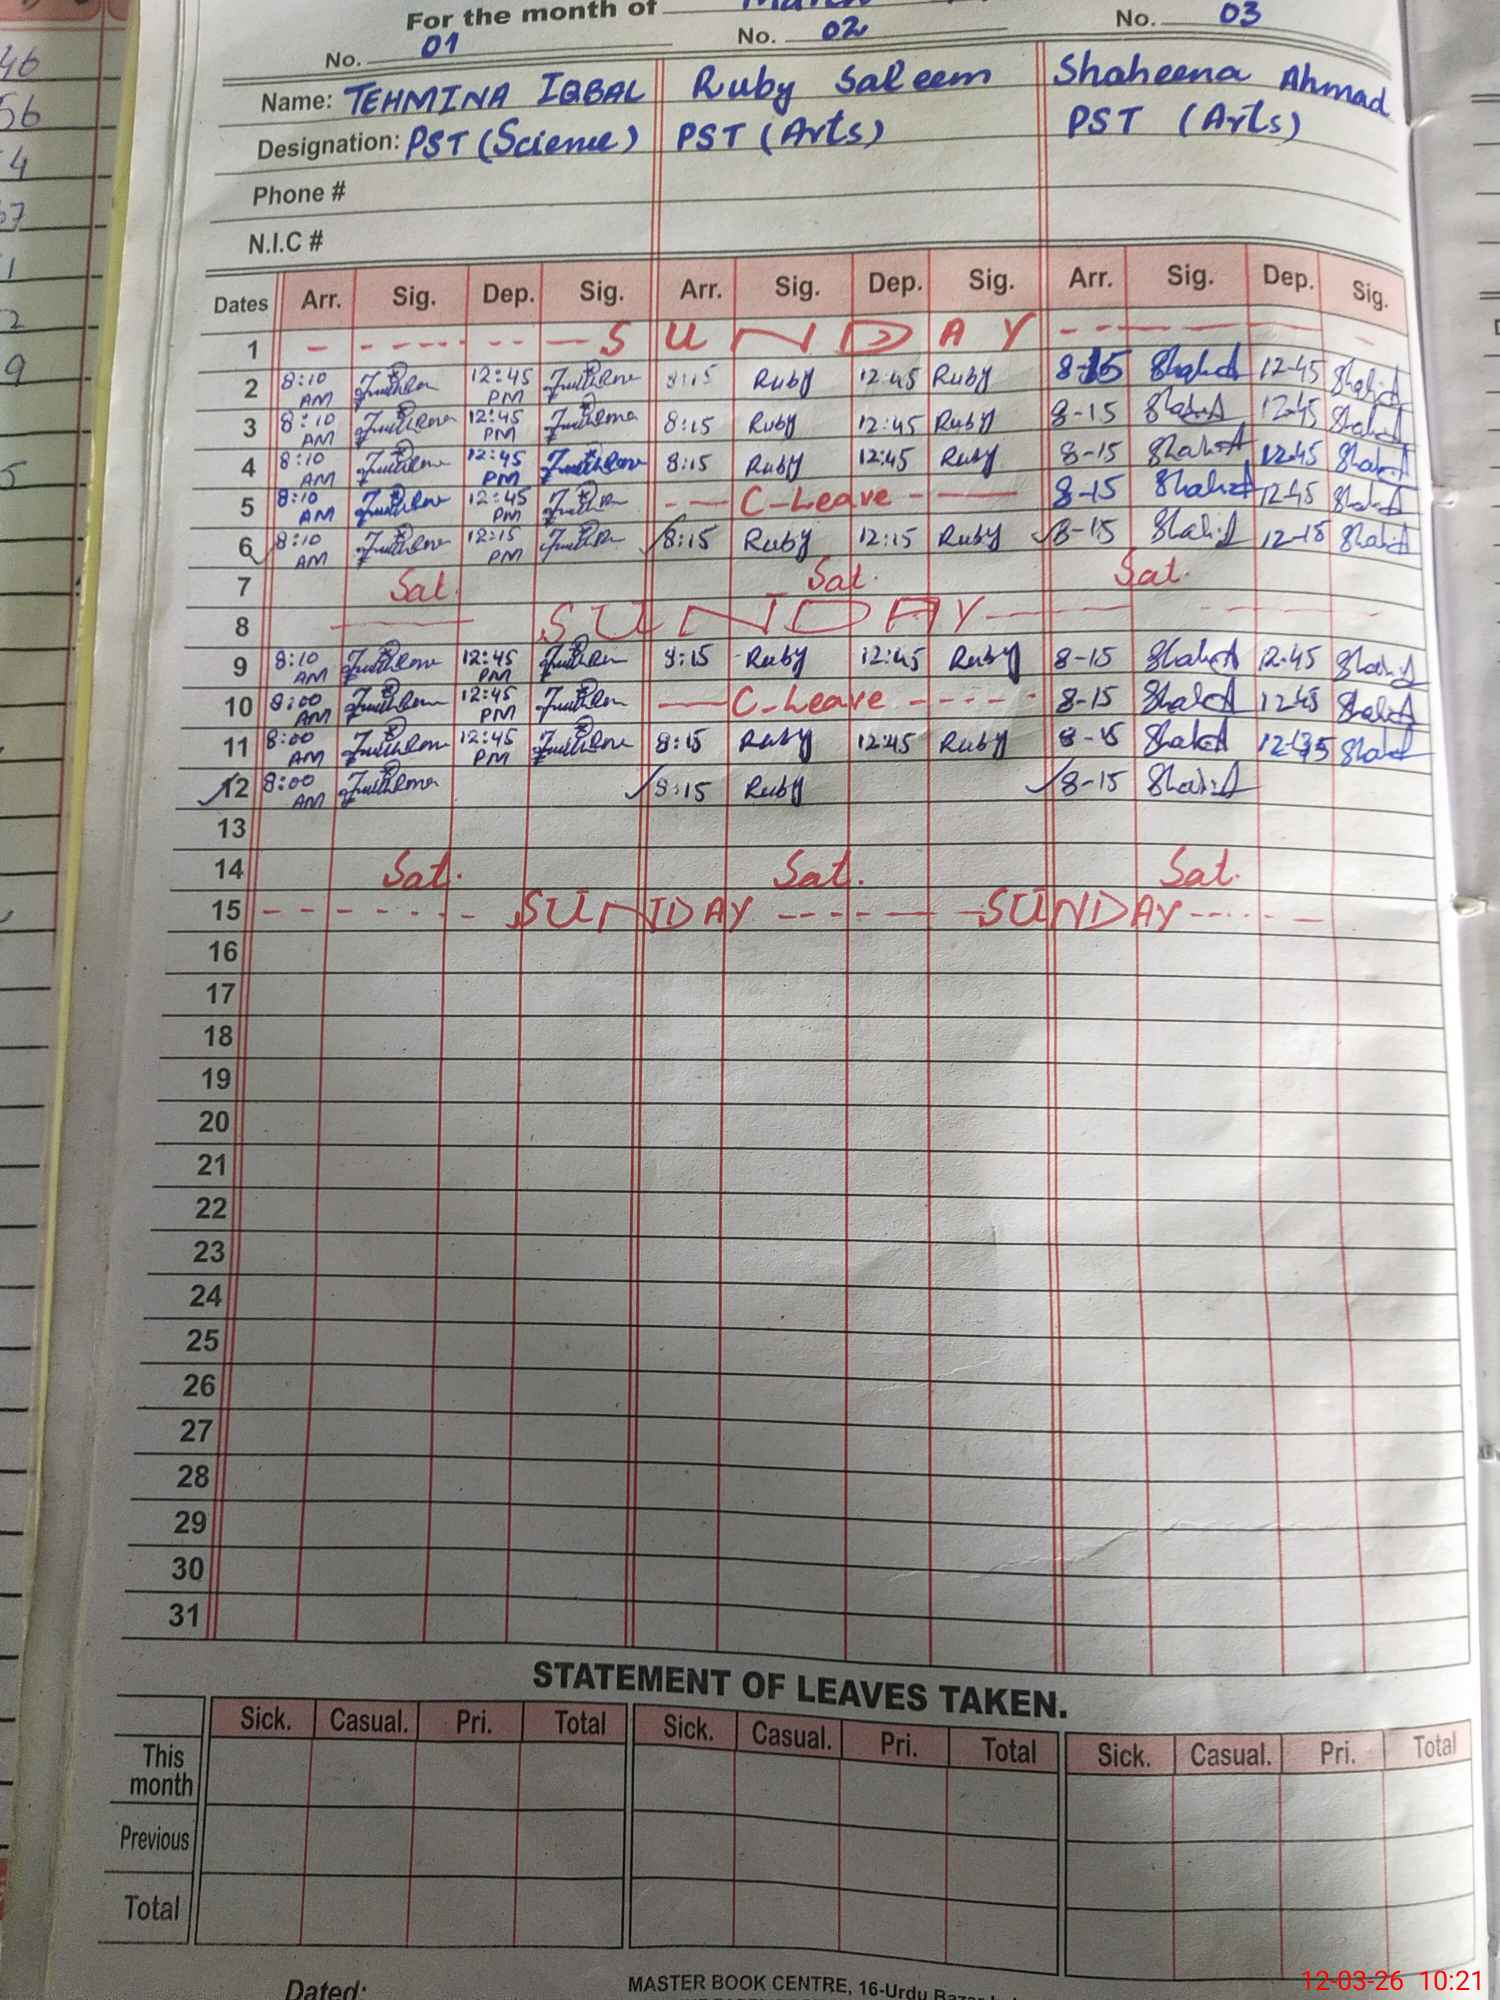 For the month of March
No. 01 No. 02 No. 03
Name: TEHMINA IQBAL Ruby Saleem Shaheena Ahmad
Designation: PST (Science) PST (Arts) PST (Arts)
Phone #
N.I.C #
Dates Arr. Sig. Dep. Sig. Arr. Sig. Dep. Sig. Arr. Sig. Dep. Sig.
1 SUNDAY
2 8:10 AM 12:45 PM 8:15 Ruby 12:45 Ruby 8-15 12-45
3 8:10 AM 12:45 PM 8:15 Ruby 12:45 Ruby 8-15 12-45
4 8:10 AM 12:45 PM 8:15 Ruby 12:45 Ruby 8-15 12-45
5 8:10 AM 12:45 PM C-Leave 8-15 12-45
6 8:10 AM 12:15 PM 8:15 Ruby 12:15 Ruby 8-15 12-15
7 Sat. Sat. Sat.
8 SUNDAY
9 8:10 AM 12:45 PM 8:15 Ruby 12:45 Ruby 8-15 12-45
10 8:00 AM 12:45 PM C-Leave 8-15 12-45
11 8:00 AM 12:45 PM 8:15 Ruby 12:45 Ruby 8-15
12 8:00 AM 8:15 Ruby 8-15
13
14 Sat. Sat. Sat.
15 SUNDAY SUNDAY
16
17
18
19
20
21
22
23
24
25
26
27
28
29
30
31
STATEMENT OF LEAVES TAKEN.
Sick. Casual. Pri. Total Sick. Casual. Pri. Total Sick. Casual. Pri. Total
This month
Previous
Total
Dated:
MASTER BOOK CENTRE, 16-Urdu
12-03-26 10:21